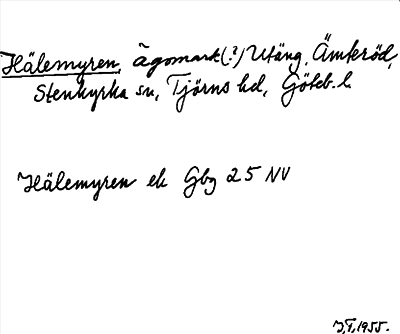 Hälemyren, ägomark(?) Utäng, Ämteröd,
Stenkyrka sn, Tjörns hd, Göteb. l.
Hälemyren ek Gbg 25 NV
1955.